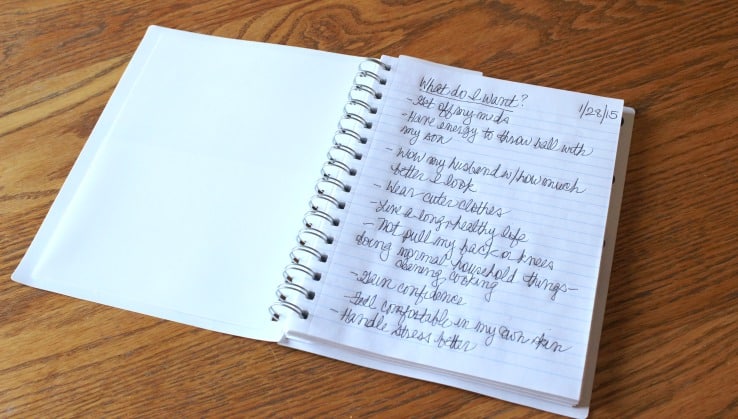 What do I want?
1/28/15
- Get off my meds
- Have energy to throw ball with
my son
- Wow my husband w/how much
better I look
- Wear cuter clothes
- Live a long healthy life
- Not pull my back or knees
doing normal household things -
cleaning cooking
- Gain confidence
- Feel comfortable in my own skin
- Handle stress better